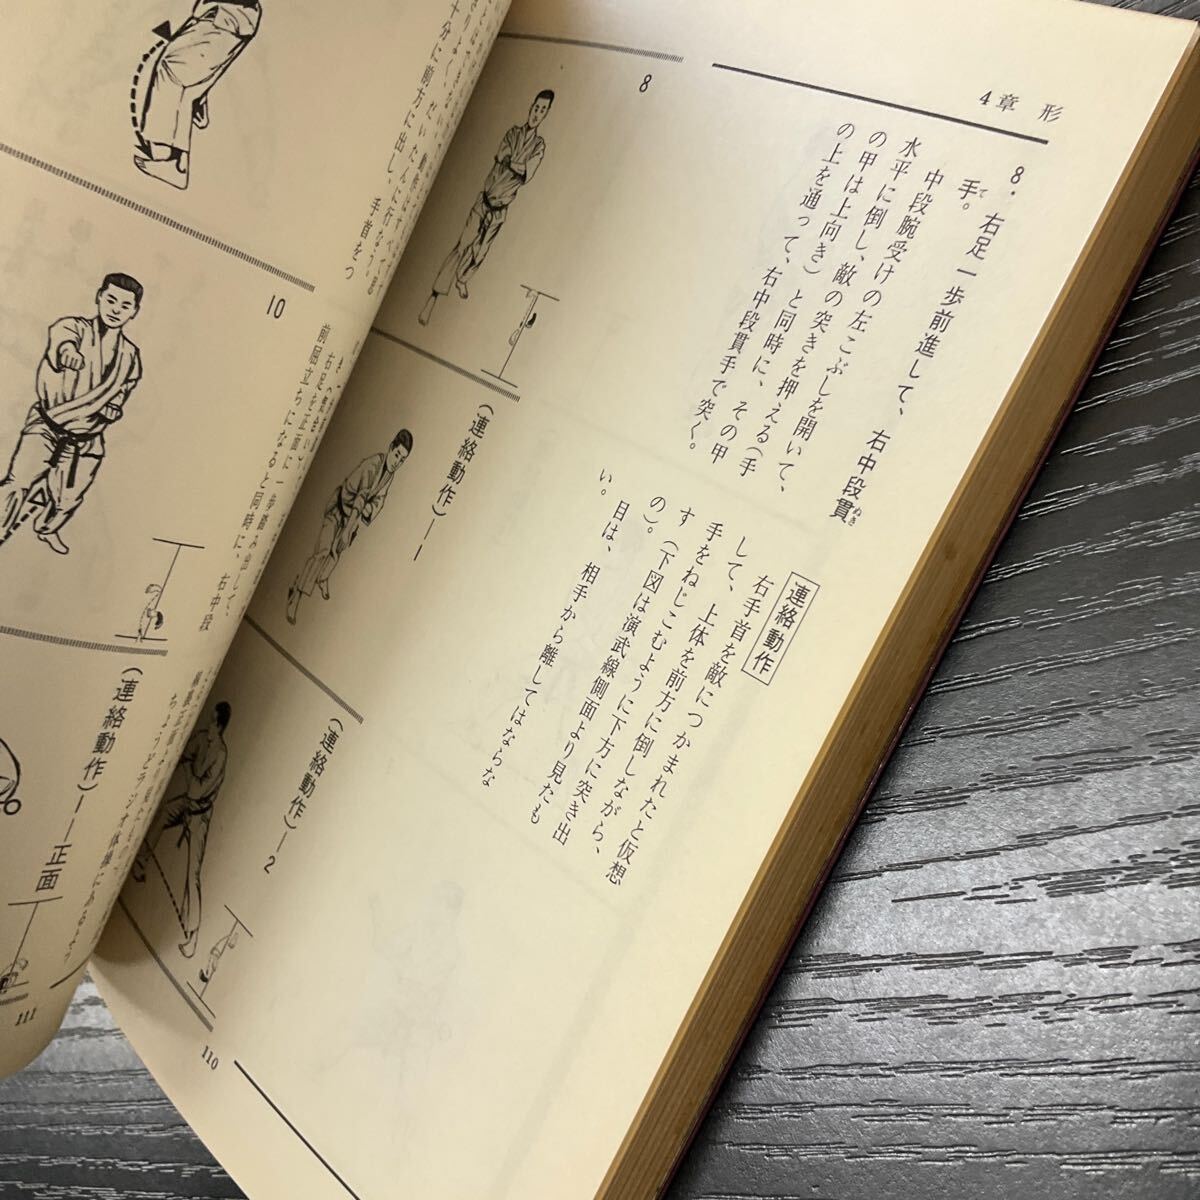 4章 形
8. 右足一歩前進して、右中段貫
手。
中段腕受けの左こぶしを開いて、
水平に倒し、敵の突きを押える(手
の甲は上向き)と同時に、その甲
の上を通って、右中段貫手で突く。
連絡動作
右手首を敵につかまれたと仮想
して、上体を前方に倒しながら、
手をねじこむように下方に突き出
す(下図は演武線側面より見たも
の)。
目は、相手から離してはならな
い。
8
(連絡動作)—1
(連絡動作)—2
110
十分に前方に出し、手首をつ
10
右足を正面に一歩踏み出して、
前屈立ちになると同時に、右中段
(連絡動作)—正面
ちょうどラジオ体操にあるよう
111